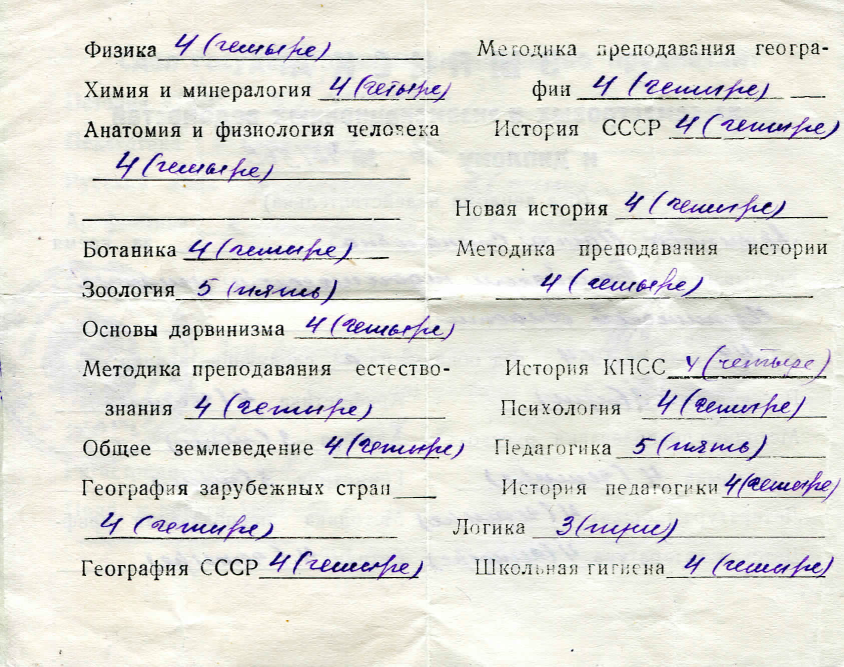 Физика 4 (четыре)
Химия и минералогия 4 (четыре)
Анатомия и физиология человека
4 (четыре)
Ботаника 4 (четыре)
Зоология 5 (пять)
Основы дарвинизма 4 (четыре)
Методика преподавания естество-
знания 4 (четыре)
Общее землеведение 4 (четыре)
География зарубежных стран
4 (четыре)
География СССР 4 (четыре)
Методика преподавания геогра-
фии 4 (четыре)
История СССР 4 (четыре)
Новая история 4 (четыре)
Методика преподавания истории
4 (четыре)
История КПСС 4 (четыре)
Психология 4 (четыре)
Педагогика 5 (пять)
История педагогики 4 (четыре)
Логика 3 (три)
Школьная гигиена 4 (четыре)